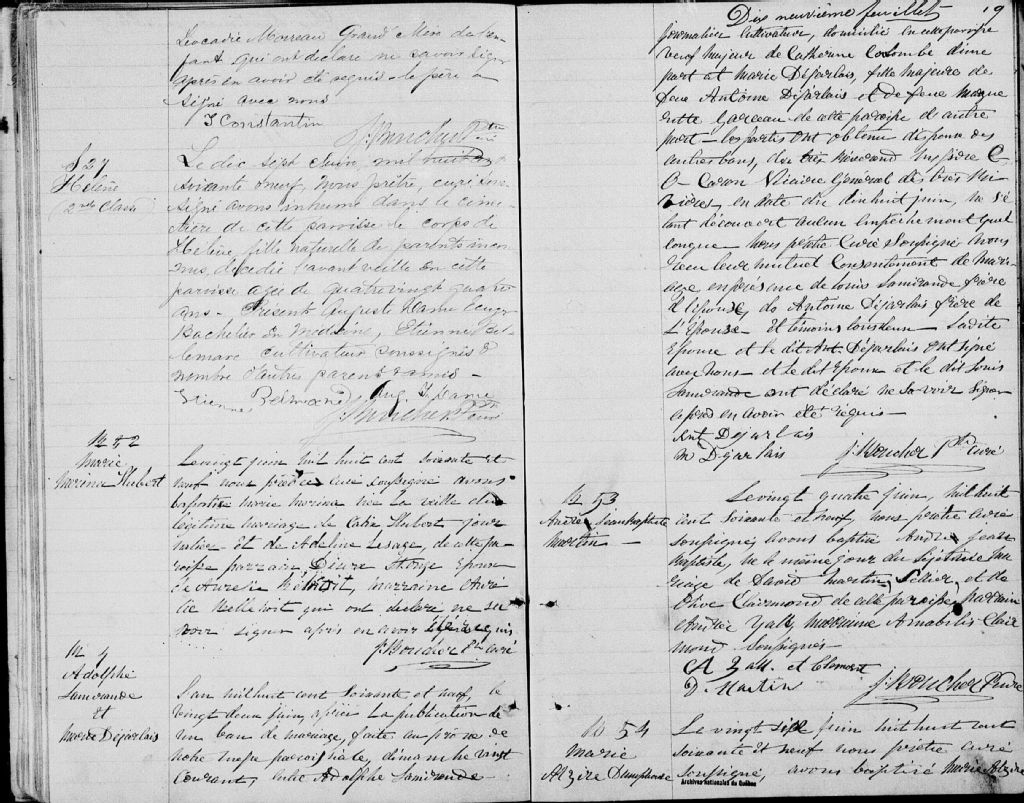 Leocadie Moreau Grand Mère de l'en-
fant qui ont déclaré ne savoir signer
après en avoir été requis - le père a
signé avec nous
J Constantin
J. Boucher Ptre
S 27
Hélène
(2nde Classe)
Le dix sept Juin, mil huit cent
soixante & neuf, nous prêtre, curé sous-
signé avons inhumé dans le cime-
tière de cette paroisse le corps de
Hélène fille naturelle de parents incon-
nus, décédée l'avant veille en cette
paroisse agée de quatrevingt quatre
ans - Présents Auguste Hamel
Bachelier en Médecine, Etienne Bel-
lemare cultivateur soussignés &
nombre d'autres parents & amis -
Etienne Aug.
J. Boucher Ptre Curé
Marie
Marina Hubert
Le vingt juin mil huit cent soixante et
neuf nous prêtre curé soussigné avons
baptisé marie marina née la veille du
légitime mariage de Hubert jour-
nalier et de Adeline Lesage, de cette pa-
roisse parrain Désiré époux
de Aurelie marraine Auré
lie qui ont déclaré ne sa
voir signer après en avoir été requis
J. Boucher Ptre curé
Adolphe
Lamirande
et
Marie Déjarlais
L'an mil huit cent soixante et neuf, le
vingt deux juin, après la publication de
un ban de mariage, faite au prône de
notre messe paroissiale, dimanche vingt
courant, entre Adolphe Lamirande -
Dix neuvième feuillet 19
journalier cultivateur, domicilié en cette paroisse
veuf majeur de Catherine Colombe d'une
part et Marie Déjarlais, fille majeure de
feu Antoine Déjarlais et de feue Margue
ritte Garceau de cette paroisse d'autre
part - les parties ont obtenu dispense des
autres bans, de très Révérend Messire C.
O. Caron Vicaire Général de Trois Ri-
vières, en date du dix huit juin, ne s'é
tant découvert aucun empêchement quel
conque - Nous prêtre Curé Soussigné avons
reçu leur mutuel Consentement de Mari-
age en présence de Louis Lamirande frère
de l'époux, de Antoine Déjarlais frère de
l'Epouse - et témoins Ladite
Epouse et le dit Ant. Déjarlais ont signé
avec nous - et le dit Epoux et le dit Louis
Lamirande ont déclaré ne savoir signer
après en avoir été requis -
Ant Dejarlais
M Dejarlais J. Boucher Ptre curé
M 53
André Jean baptiste
Martin -
Le vingt quatre juin, mil huit
cent soixante et neuf, nous prêtre curé
soussigné, avons baptisé André jean
baptiste, né le même jour du légitime ma
riage de David Martin, et de
Olive Clairmond de cette paroisse, parrain
André marraine Amabilis Clair
mond soussignés -
et Clemont
D. Martin J. Boucher Ptre curé
54
Marie
Alzire
Le vingt sept juin mil huit cent
soixante et neuf nous prêtre curé
soussigné, avons baptisé Marie Alzire
Archives nationales du Québec